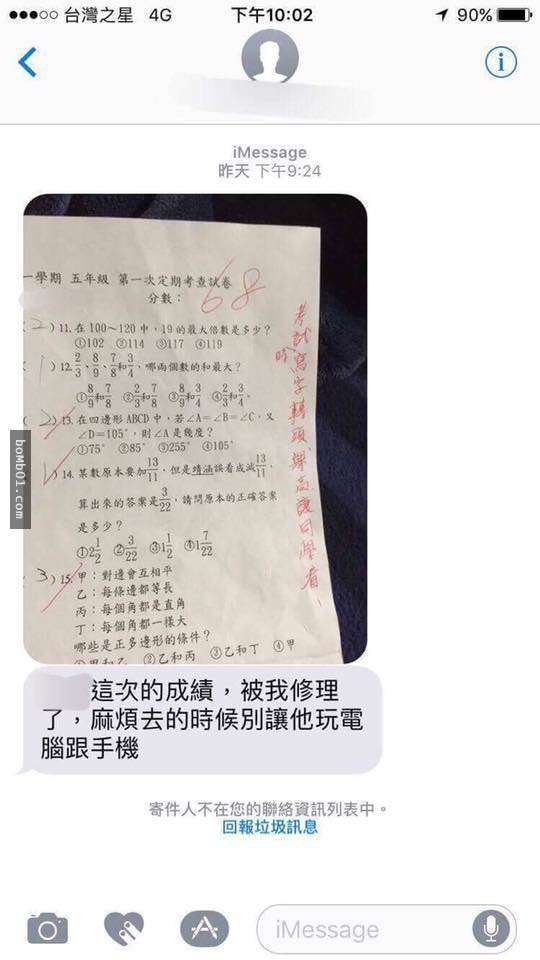 台灣之星 4G 下午10:02 90%
iMessage
昨天 下午9:24
一學期 五年級 第一次定期考查試卷
分數：68
2)11.在100～120中，19的最大倍數是多少？
①102 ②114 ③117 ④119
1)12.2/3、8/9、7/8和3/4，哪兩個數的和最大？
①8/9和7/8 ②2/3和7/8 ③8/9和3/4 ④2/3和3/4。
2)13.在四邊形ABCD中，若∠A=∠B=∠C，又
∠D=105°，則∠A是幾度？
①75° ②85° ③255° ④105°
)14.某數原本要加13/11，但是靖涵誤看成減13/11，
算出來的答案是3/22，請問原本的正確答案
是多少？
①2 1/2 ②3/22 ③1 1/2 ④1 7/22
3)15.甲：對邊會互相平
乙：每條邊都等長
丙：每個角都是直角
丁：每個角都一樣大
哪些是正多邊形的條件？
①甲和乙 ②乙和丙 ③乙和丁 ④甲
考試時寫字轉頭
同學看
boMb01.com
這次的成績，被我修理
了，麻煩去的時候別讓他玩電
腦跟手機
寄件人不在您的聯絡資訊列表中。
回報垃圾訊息
iMessage